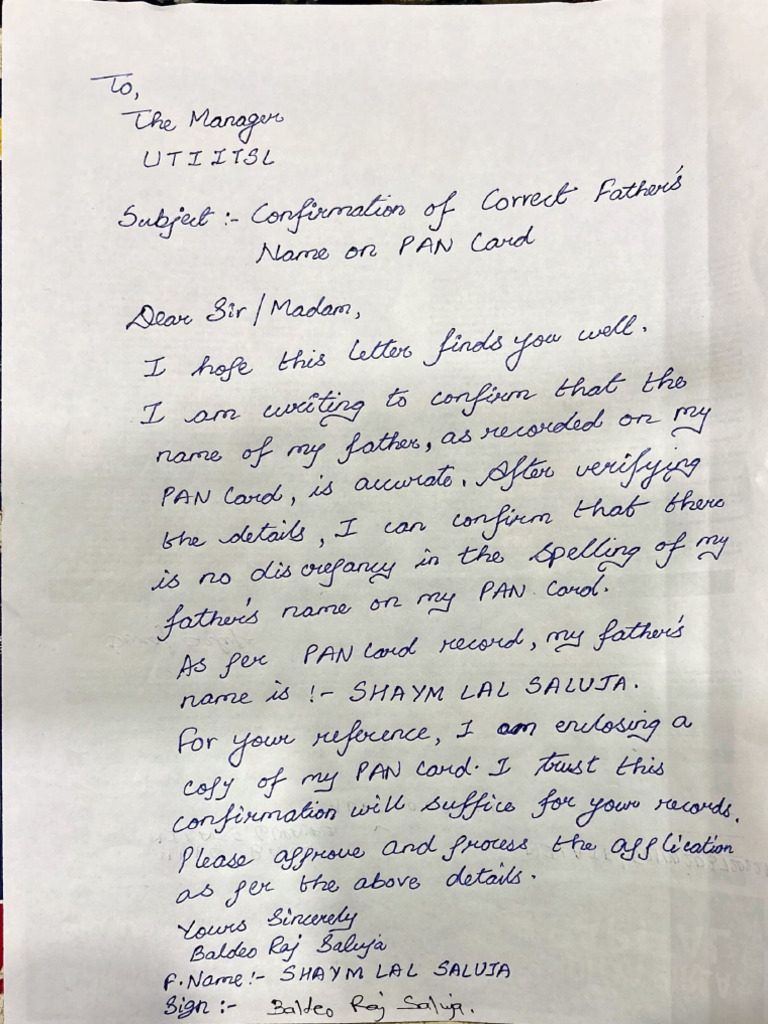 To,
The Manager
UTIITSL
Subject :- Confirmation of Correct Father's
Name on PAN Card
Dear Sir / Madam,
I hope this letter finds you well.
I am writing to confirm that the
name of my father, as recorded on my
PAN Card, is accurate. After verifying
the details, I can confirm that there
is no discrepancy in the spelling of my
father's name on my PAN Card.
As per PAN Card record, my father's
name is :- SHAYM LAL SALUJA.
For your reference, I am enclosing a
copy of my PAN Card. I trust this
confirmation will suffice for your records.
Please approve and process the application
as per the above details.
Yours Sincerely
Baldeo Raj Saluja
F. Name :- SHAYM LAL SALUJA
Sign :- Baldeo Raj Saluja.